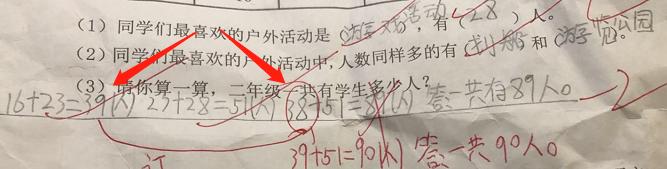 （1）同学们最喜欢的户外活动是（游戏活动，有（28）人。
（2）同学们最喜欢的户外活动中，人数同样多的有 划船 和 游览公园。
（3）请你算一算，二年级一共有学生多少人？
16+23=39(人) 23+28=51(人) 38+51=89(人) 答一共有89人。
39+51=90(人) 答一共90人。
订